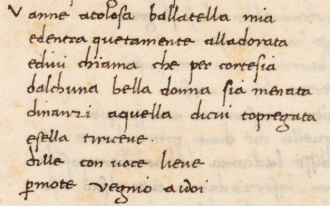 Vanne acolosa ballatella mia
edentra quetamente alladorata
edivi chiama che per cortesia
dalchuna bella donna sia menata
dinanzi aquella dicui topregata
esella tiriceve
dille con voce lieve
ꝑmote vegnio avoi